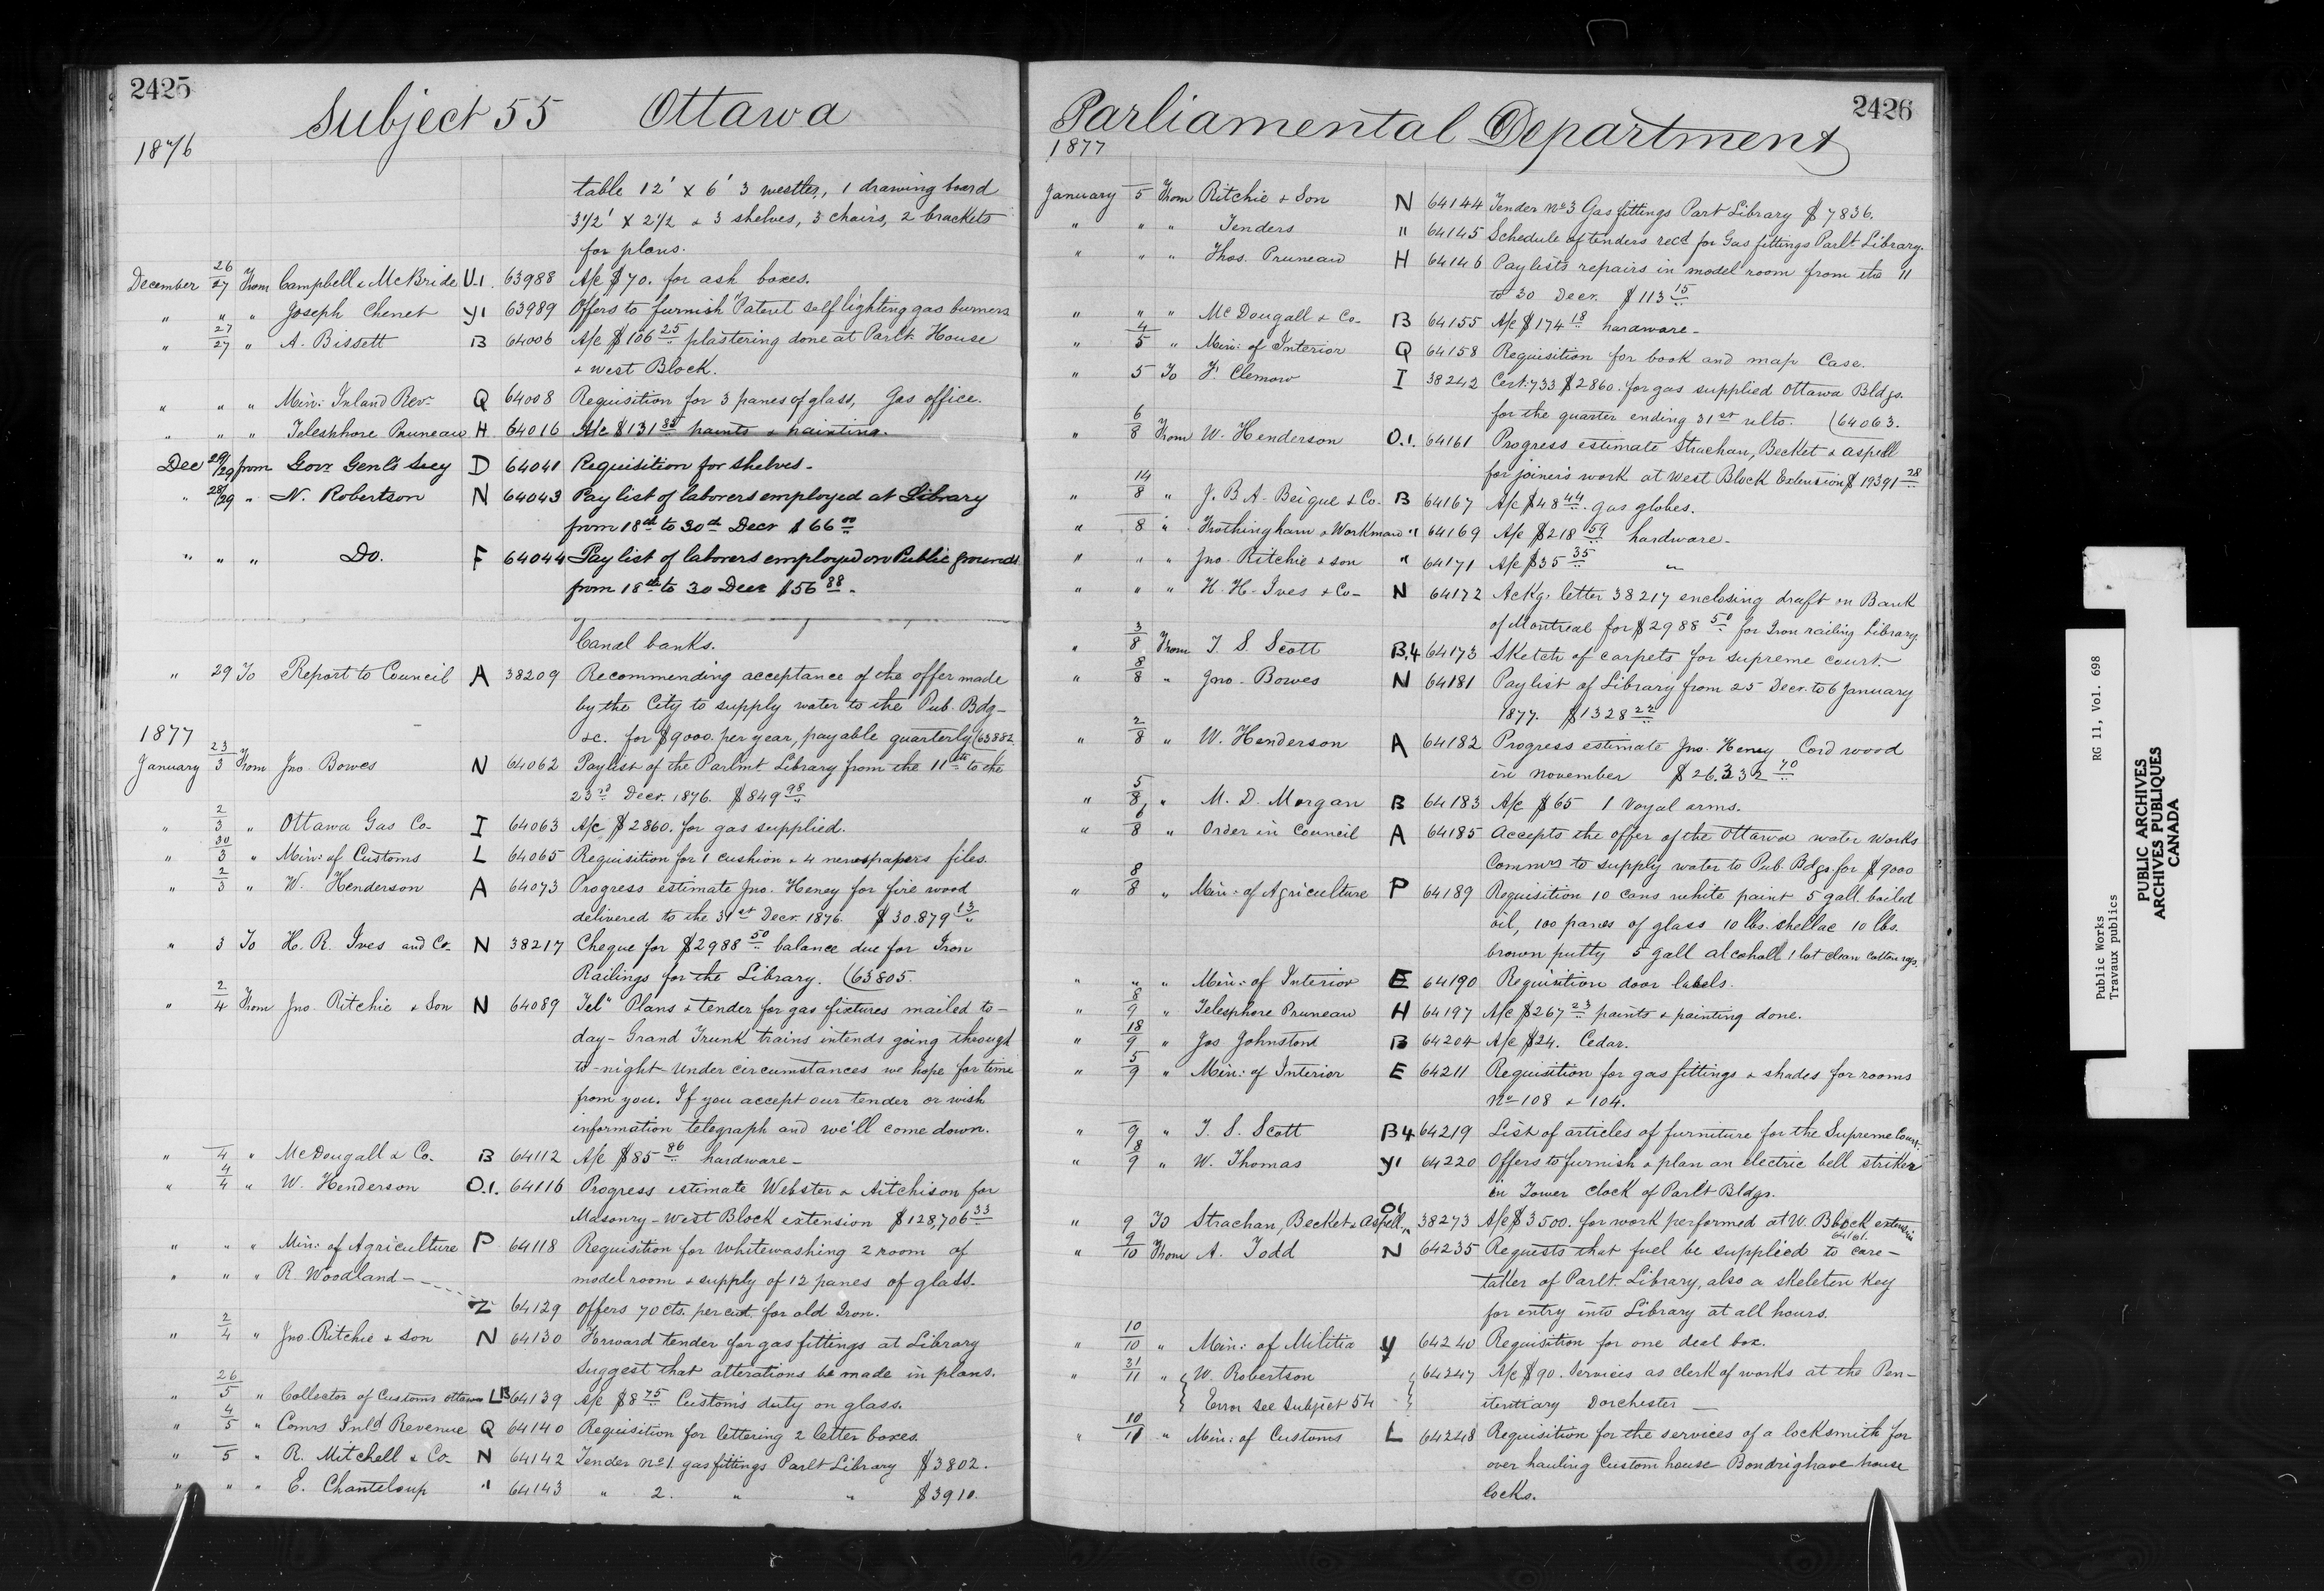 2425
Subject 55 Ottawa
1876
table 12' x 6' 3 westler, 1 drawing board
3 1/2' x 2 1/2 & 3 shelves, 3 chairs, 2 brackets
for plans.
December 26/27 From Campbell & McBride U.1. 63988 A/c $70. for ash boxes.
" " " Joseph Chenet Y1 63989 Offers to furnish "Patent self lighting gas burners
" 27/27 " A. Bissett B 64006 A/c $106 25 plastering done at Parlt. House
& West Block.
" " " Min: Inland Rev. Q 64008 Requisition for 3 panes of glass, Gas office.
" " " Telesphore Pruneau H 64016 A/c $131 88 paints & painting.
Dec 29/29 from Govr Genl's Secy D 64041 Requisition for shelves.
" 28/29 " N. Robertson N 64043 Pay list of laborers employed at Library
from 18th to 30th Decr $66 00
" " " Do. F 64044 Pay list of laborers employed on Public grounds
from 18th to 30 Decr $56 88.
Canal banks.
" 29 To Report to Council A 38209 Recommending acceptance of the offer made
by the City to supply water to the Pub. Bdg-
&c. for $9000. per year, payable quarterly (63882
1877
January 23/3 From Jno. Bowes N 64062 Paylist of the Parlmt Library from the 11th to the
23rd Decr. 1876. $849 98
" 2/3 " Ottawa Gas Co. I 64063 A/c $2860. for gas supplied.
" 30/3 " Min: of Customs L 64065 Requisition for 1 cushion & 4 newspapers files.
" 2/3 " W. Henderson A 64073 Progress estimate Jno. Heney for fire wood
delivered to the 31st Decr. 1876. $30.879 13
" 3 To H. R. Ives and Co. N 38217 Cheque for $2988 50 balance due for Iron
Railings for the Library. (63805.
" 2/4 From Jno. Ritchie & Son N 64089 Tel" Plans & tender for gas fixtures mailed to-
day - Grand Trunk trains intends going through
to-night - Under circumstances we hope for time
from you. If you accept our tender or wish
information telegraph and we'll come down.
" 4 " McDougall & Co. B 64112 A/c $85 86 hardware-
" 4/4 " W. Henderson O.1. 64116 Progress estimate Webster & Aitchison for
Masonry - West Block extension $128,706 33
" " " Min: of Agriculture P 64118 Requisition for whitewashing 2 room of
model room & supply of 12 panes of glass.
" " " R. Woodland
Z 64129 Offers 70 cts. per cwt. for old Iron.
" 2/4 " Jno. Ritchie & son N 64130 Forward tender for gas fittings at Library
suggest that alterations be made in plans.
" 26/5 " Collector of Customs Ottawa LB 64139 A/c $8 75 Customs duty on glass.
" 4/5 " Comrs Inld Revenue Q 64140 Requisition for lettering 2 letter boxes.
" 5 " R. Mitchell & Co. N 64142 Tender No 1. gas fittings Parlt Library $3802.
" " " E. Chanteloup " 64143 " 2. " " $3910.
2426
Parliamental Department
1877
January 5 From Ritchie & Son N 64144 Tender No 3 Gas fittings Parlt Library $7836.
" " " Tenders " 64145 Schedule of tenders recd for Gas fittings Parlt. Library.
" " " Thos. Pruneau H 64146 Paylists repairs in model room from the 11
to 30 Decr. $113 15
" " " McDougall & Co. B 64155 A/c $174 18 hardware-
" 4/5 " Min: of Interior Q 64158 Requisition for book and map Case.
" 5 To F. Clemow I 38242 Cert: 733 $2860. for gas supplied Ottawa Bldgs.
for the quarter ending 31st ulto. (64063.
" 6/8 From W. Henderson O.1. 64161 Progress estimate Strachan, Becket & Aspell
for joiners work at West Block Extension $19391 28
" 14/8 " J. B. A. Beique & Co. B 64167 A/c $48 44 gas globes.
" 8 " Frothingham & Workman " 64169 A/c $218 59 hardware-
" " " Jno. Ritchie & son " 64171 A/c $35 35 "
" " " H. H. Ives & Co- N 64172 Ackg. letter 38217 enclosing draft on Bank
of Montreal for $2988 50 for Iron railing Library
" 3/8 From T. S. Scott B.4 64173 Sketch of carpets for supreme court.
" 8/8 " Jno. Bowes N 64181 Paylist of Library from 25 Decr. to 6 January
1877. $1328 22
" 2/8 " W. Henderson A 64182 Progress estimate Jno. Heney Cord wood
in november $26.332 70
" 5/8 " M. D. Morgan B 64183 A/c $65 1 Voyal arms.
" 6/8 " Order in Council A 64185 Accepts the offer of the Ottawa water works
Commrs to supply water to Pub. Bdgs for $9000
" 8/8 " Min: of Agriculture P 64189 Requisition 10 cans white paint 5 gall. boiled
oil, 100 panes of glass 10 lbs. shellac 10 lbs.
brown putty 5 gall alcohall 1 lot clean cotton rags.
" " " Min: of Interior E 64190 Requisition door labels.
" 8/9 " Telesphore Pruneau H 64197 A/c $267 23 paints & painting done.
" 18/9 " Jos Johnston B 64204 A/c $24. Cedar.
" 5/9 " Min: of Interior E 64211 Requisition for gas fittings & shades for rooms
No 108 & 104.
" 9 " T. S. Scott B4 64219 List of articles of furniture for the Supreme Court.
" 8/9 " W. Thomas Y1 64220 Offers to furnish & plan an electric bell striker
in Tower clock of Parlt Bldgs.
" 9 To Strachan, Becket & Aspell O1 38273 A/c $3500. for work performed at W. Block extension
64161.
" 9/10 From A. Todd N 64235 Requests that fuel be supplied to care-
taker of Parlt Library, also a skeleton key
for entry into Library at all hours.
" 10/10 " Min: of Militia Y 64240 Requisition for one deal box.
" 31/11 " W. Robertson 64247 A/c $90. Services as clerk of works at the Pen-
Error see Subject 54 itentiary Dorchester -
" 10/11 " Min: of Customs L 64248 Requisition for the services of a locksmith for
over hauling Custom house Bondrighave house
locks.
Public Works RG 11, Vol. 698
Travaux publics
PUBLIC ARCHIVES
ARCHIVES PUBLIQUES
CANADA